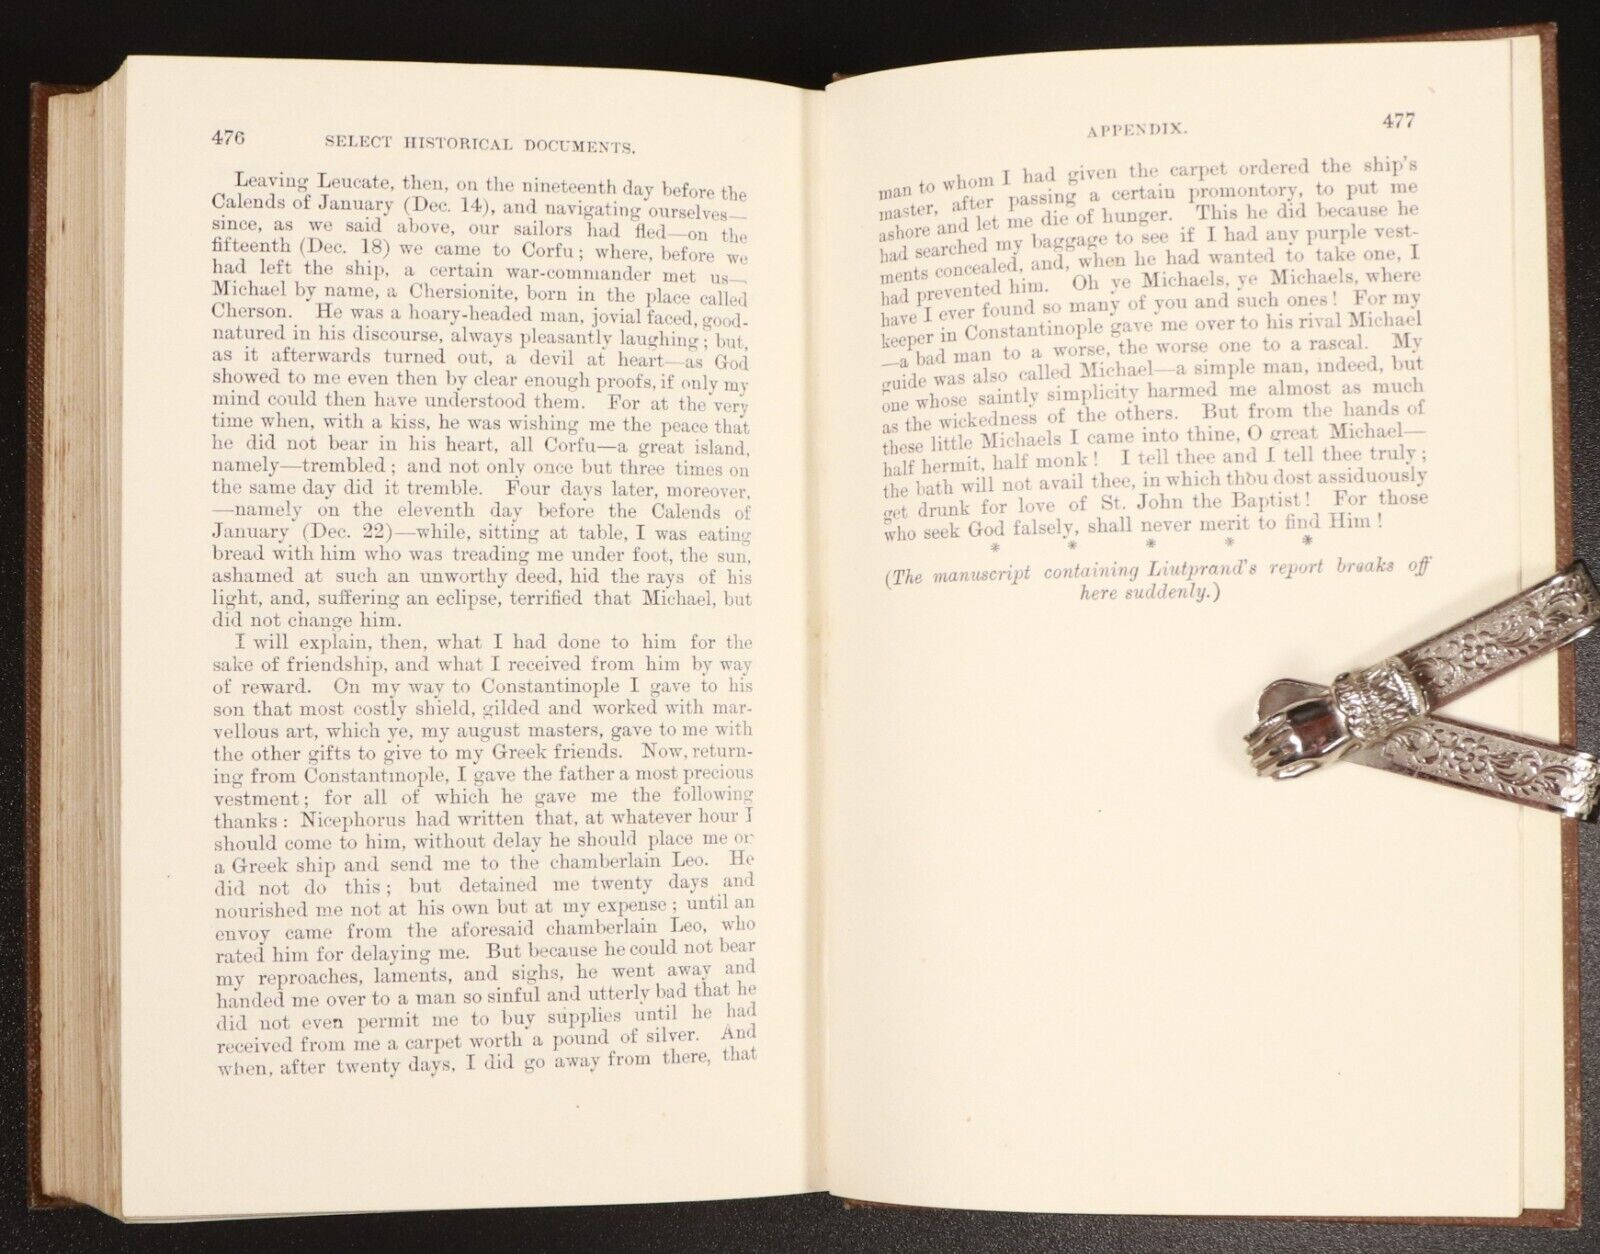 476
SELECT HISTORICAL DOCUMENTS.
Leaving Leucate, then, on the nineteenth day before the
Calends of January (Dec. 14), and navigating ourselves—
since, as we said above, our sailors had fled—on the
fifteenth (Dec. 18) we came to Corfu; where, before we
had left the ship, a certain war-commander met us—
Michael by name, a Chersionite, born in the place called
Cherson. He was a hoary-headed man, jovial faced, good-
natured in his discourse, always pleasantly laughing; but,
as it afterwards turned out, a devil at heart—as God
showed to me even then by clear enough proofs, if only my
mind could then have understood them. For at the very
time when, with a kiss, he was wishing me the peace that
he did not bear in his heart, all Corfu—a great island,
namely—trembled; and not only once but three times on
the same day did it tremble. Four days later, moreover,
—namely on the eleventh day before the Calends of
January (Dec. 22)—while, sitting at table, I was eating
bread with him who was treading me under foot, the sun,
ashamed at such an unworthy deed, hid the rays of his
light, and, suffering an eclipse, terrified that Michael, but
did not change him.
I will explain, then, what I had done to him for the
sake of friendship, and what I received from him by way
of reward. On my way to Constantinople I gave to his
son that most costly shield, gilded and worked with mar-
vellous art, which ye, my august masters, gave to me with
the other gifts to give to my Greek friends. Now, return-
ing from Constantinople, I gave the father a most precious
vestment; for all of which he gave me the following
thanks: Nicephorus had written that, at whatever hour I
should come to him, without delay he should place me or
a Greek ship and send me to the chamberlain Leo. He
did not do this; but detained me twenty days and
nourished me not at his own but at my expense; until an
envoy came from the aforesaid chamberlain Leo, who
rated him for delaying me. But because he could not bear
my reproaches, laments, and sighs, he went away and
handed me over to a man so sinful and utterly bad that he
did not even permit me to buy supplies until he had
received from me a carpet worth a pound of silver. And
when, after twenty days, I did go away from there, that
APPENDIX.
477
man to whom I had given the carpet ordered the ship's
master, after passing a certain promontory, to put me
ashore and let me die of hunger. This he did because he
had searched my baggage to see if I had any purple vest-
ments concealed, and, when he had wanted to take one, I
had prevented him. Oh ye Michaels, ye Michaels, where
have I ever found so many of you and such ones! For my
keeper in Constantinople gave me over to his rival Michael
—a bad man to a worse, the worse one to a rascal. My
guide was also called Michael—a simple man, indeed, but
one whose saintly simplicity harmed me almost as much
as the wickedness of the others. But from the hands of
these little Michaels I came into thine, O great Michael—
half hermit, half monk! I tell thee and I tell thee truly;
the bath will not avail thee, in which thou dost assiduously
get drunk for love of St. John the Baptist! For those
who seek God falsely, shall never merit to find Him!
* * * * *
(The manuscript containing Liutprand's report breaks off
here suddenly.)